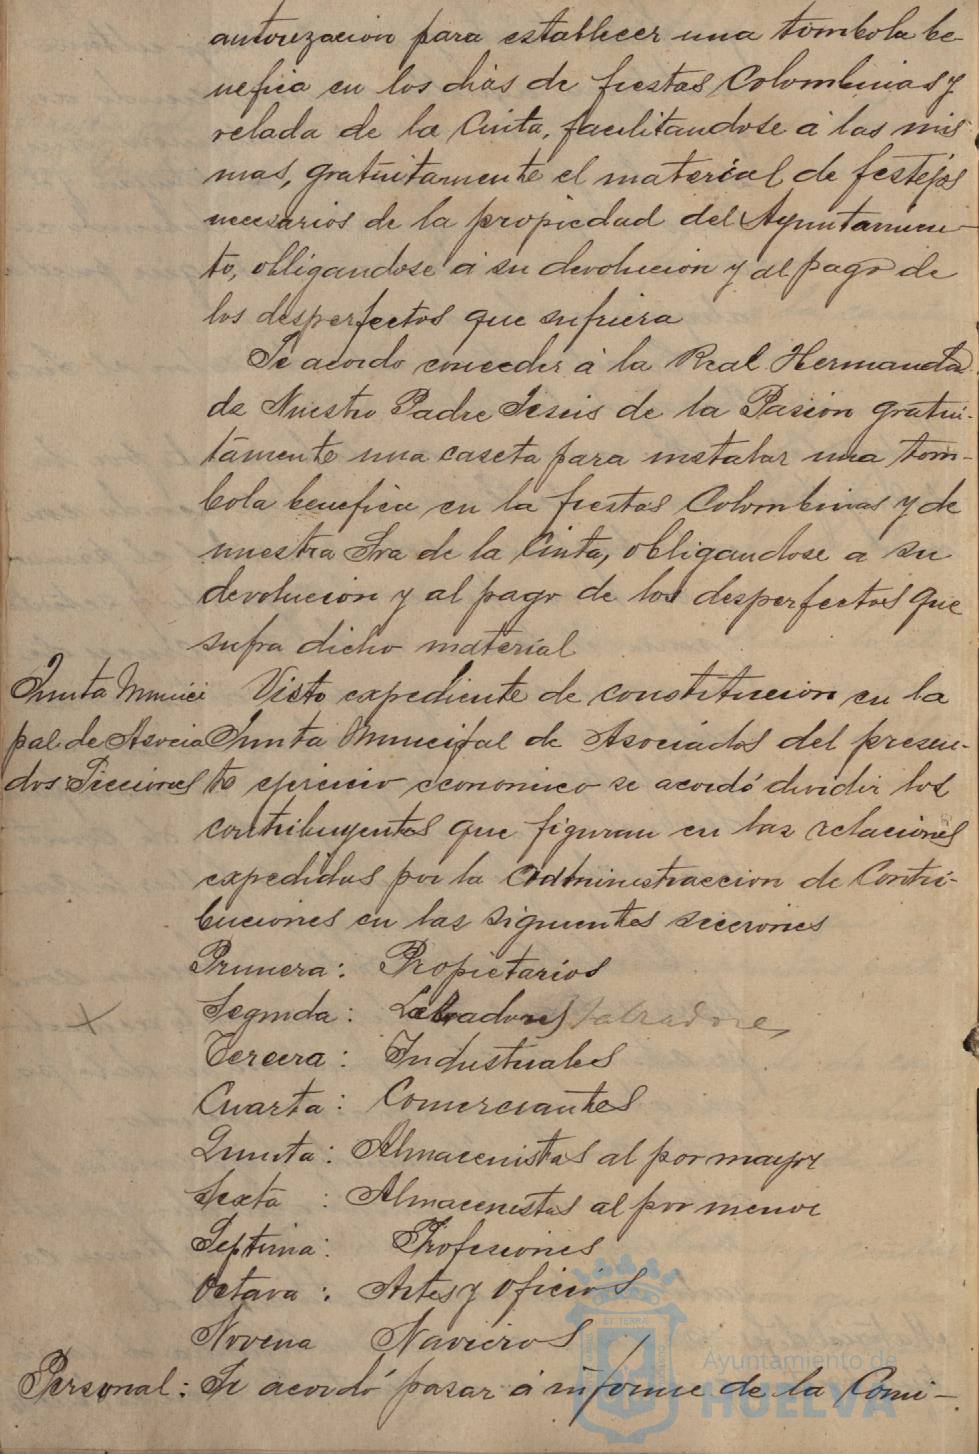 autorizacion para establecer una tombola be-
nefica en los dias de fiestas Colombinas y
velada de la Cinta, facilitandose á las mis
mas, gratuitamente el material de festejos
necesarios de la propiedad del Ayuntamien-
to, obligandose á su devolucion y al pago de
los desperfectos que sufriera
Se acordo conceder á la Real Hermandad
de Nuestro Padre Jesús de la Pasión gratui-
tamente una caseta para instalar una tom-
bola benefica en la fiestas Colombinas y de
nuestra Sra de la Cinta, obligandose a su
devolucion y al pago de los desperfectos que
sufra dicho material
Junta Munici
pal de Asocia
dos Secciones
Visto expediente de constitucion en la
Junta Municipal de Asociados del presen-
te ejercicio economico se acordó dividir los
contribuyentes que figuran en las relaciones
expedidas por la Administraccion de Contri-
buciones en las siguientes secciones
Primera: Propietarios
Segunda: Labradores Labradores
Tercera: Industriales
Cuarta: Comerciantes
Quinta: Almacenistas al por mayor
Sexta : Almacenistas al por menor
Septima: Profesiones
Octava : Artes y oficios
Novena Navieros
Personal: Se acordó pasar á informe de la Comi-
Ayuntamiento de
HUELVA